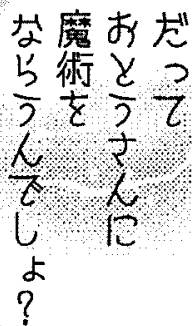 だって
おとうさんに
魔術を
ならうんでしょ？